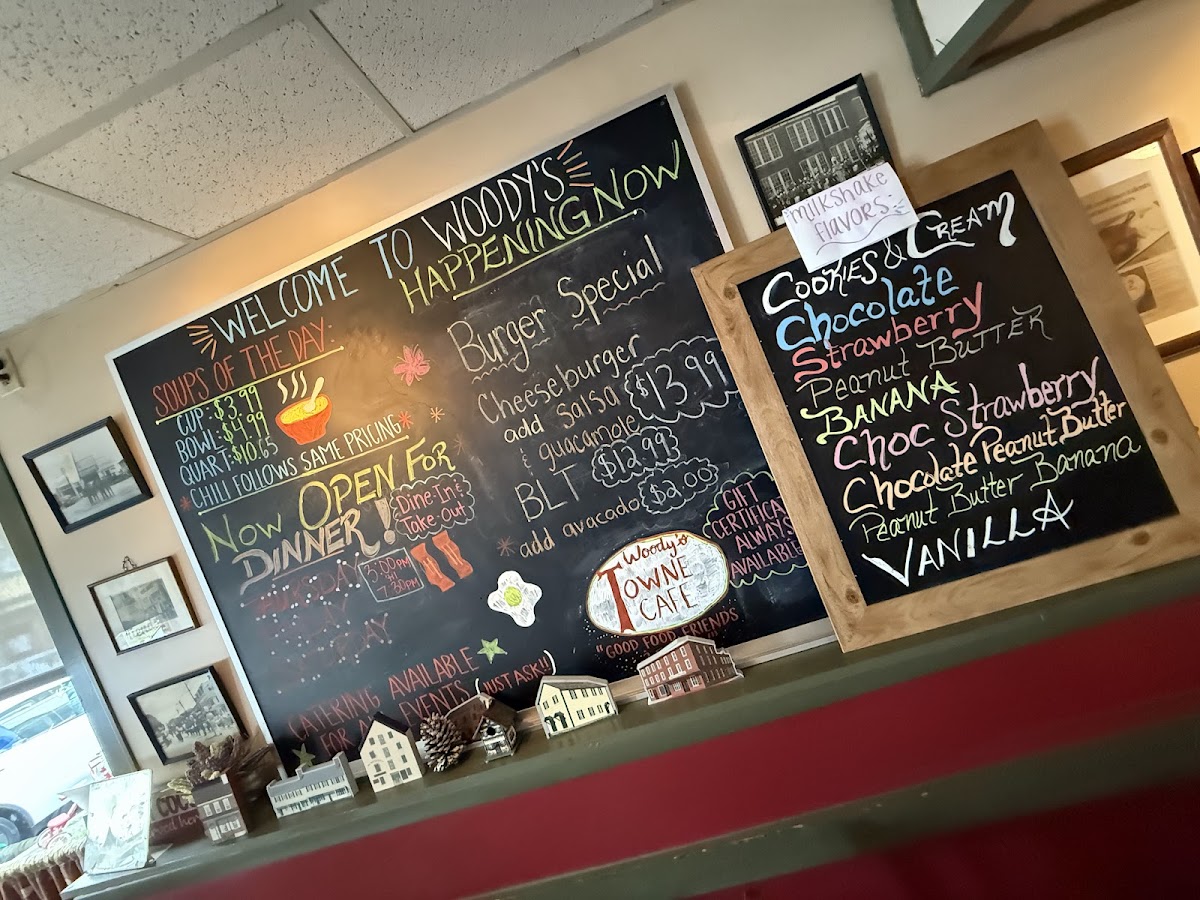 WELCOME TO WOODY'S
SOUPS OF THE DAY:
CUP: $3.99
BOWL: $4.99
QUART: $10.65
CHILI FOLLOWS SAME PRICING
NOW OPEN FOR
DINNER!
Dine-In &
Take-Out
THURSDAY
3:00PM
7:30PM
CATERING AVAILABLE
EVENTS JUST ASK!!
HAPPENING NOW
Burger Special
Cheeseburger
add salsa $13.99
& guacamole
BLT $12.99
add avacado $2.00
GIFT
CERTIFICA
ALWAYS
AVAILABLE
Woody's
TOWNE
CAFE
"GOOD FOOD FRIENDS
milkshake
flavors:
COOKIES & CREAM
Chocolate
Strawberry
Peanut BUTTER
BANANA
Choc Strawberry
Chocolate Peanut Butter
Peanut Butter Banana
VANILLA